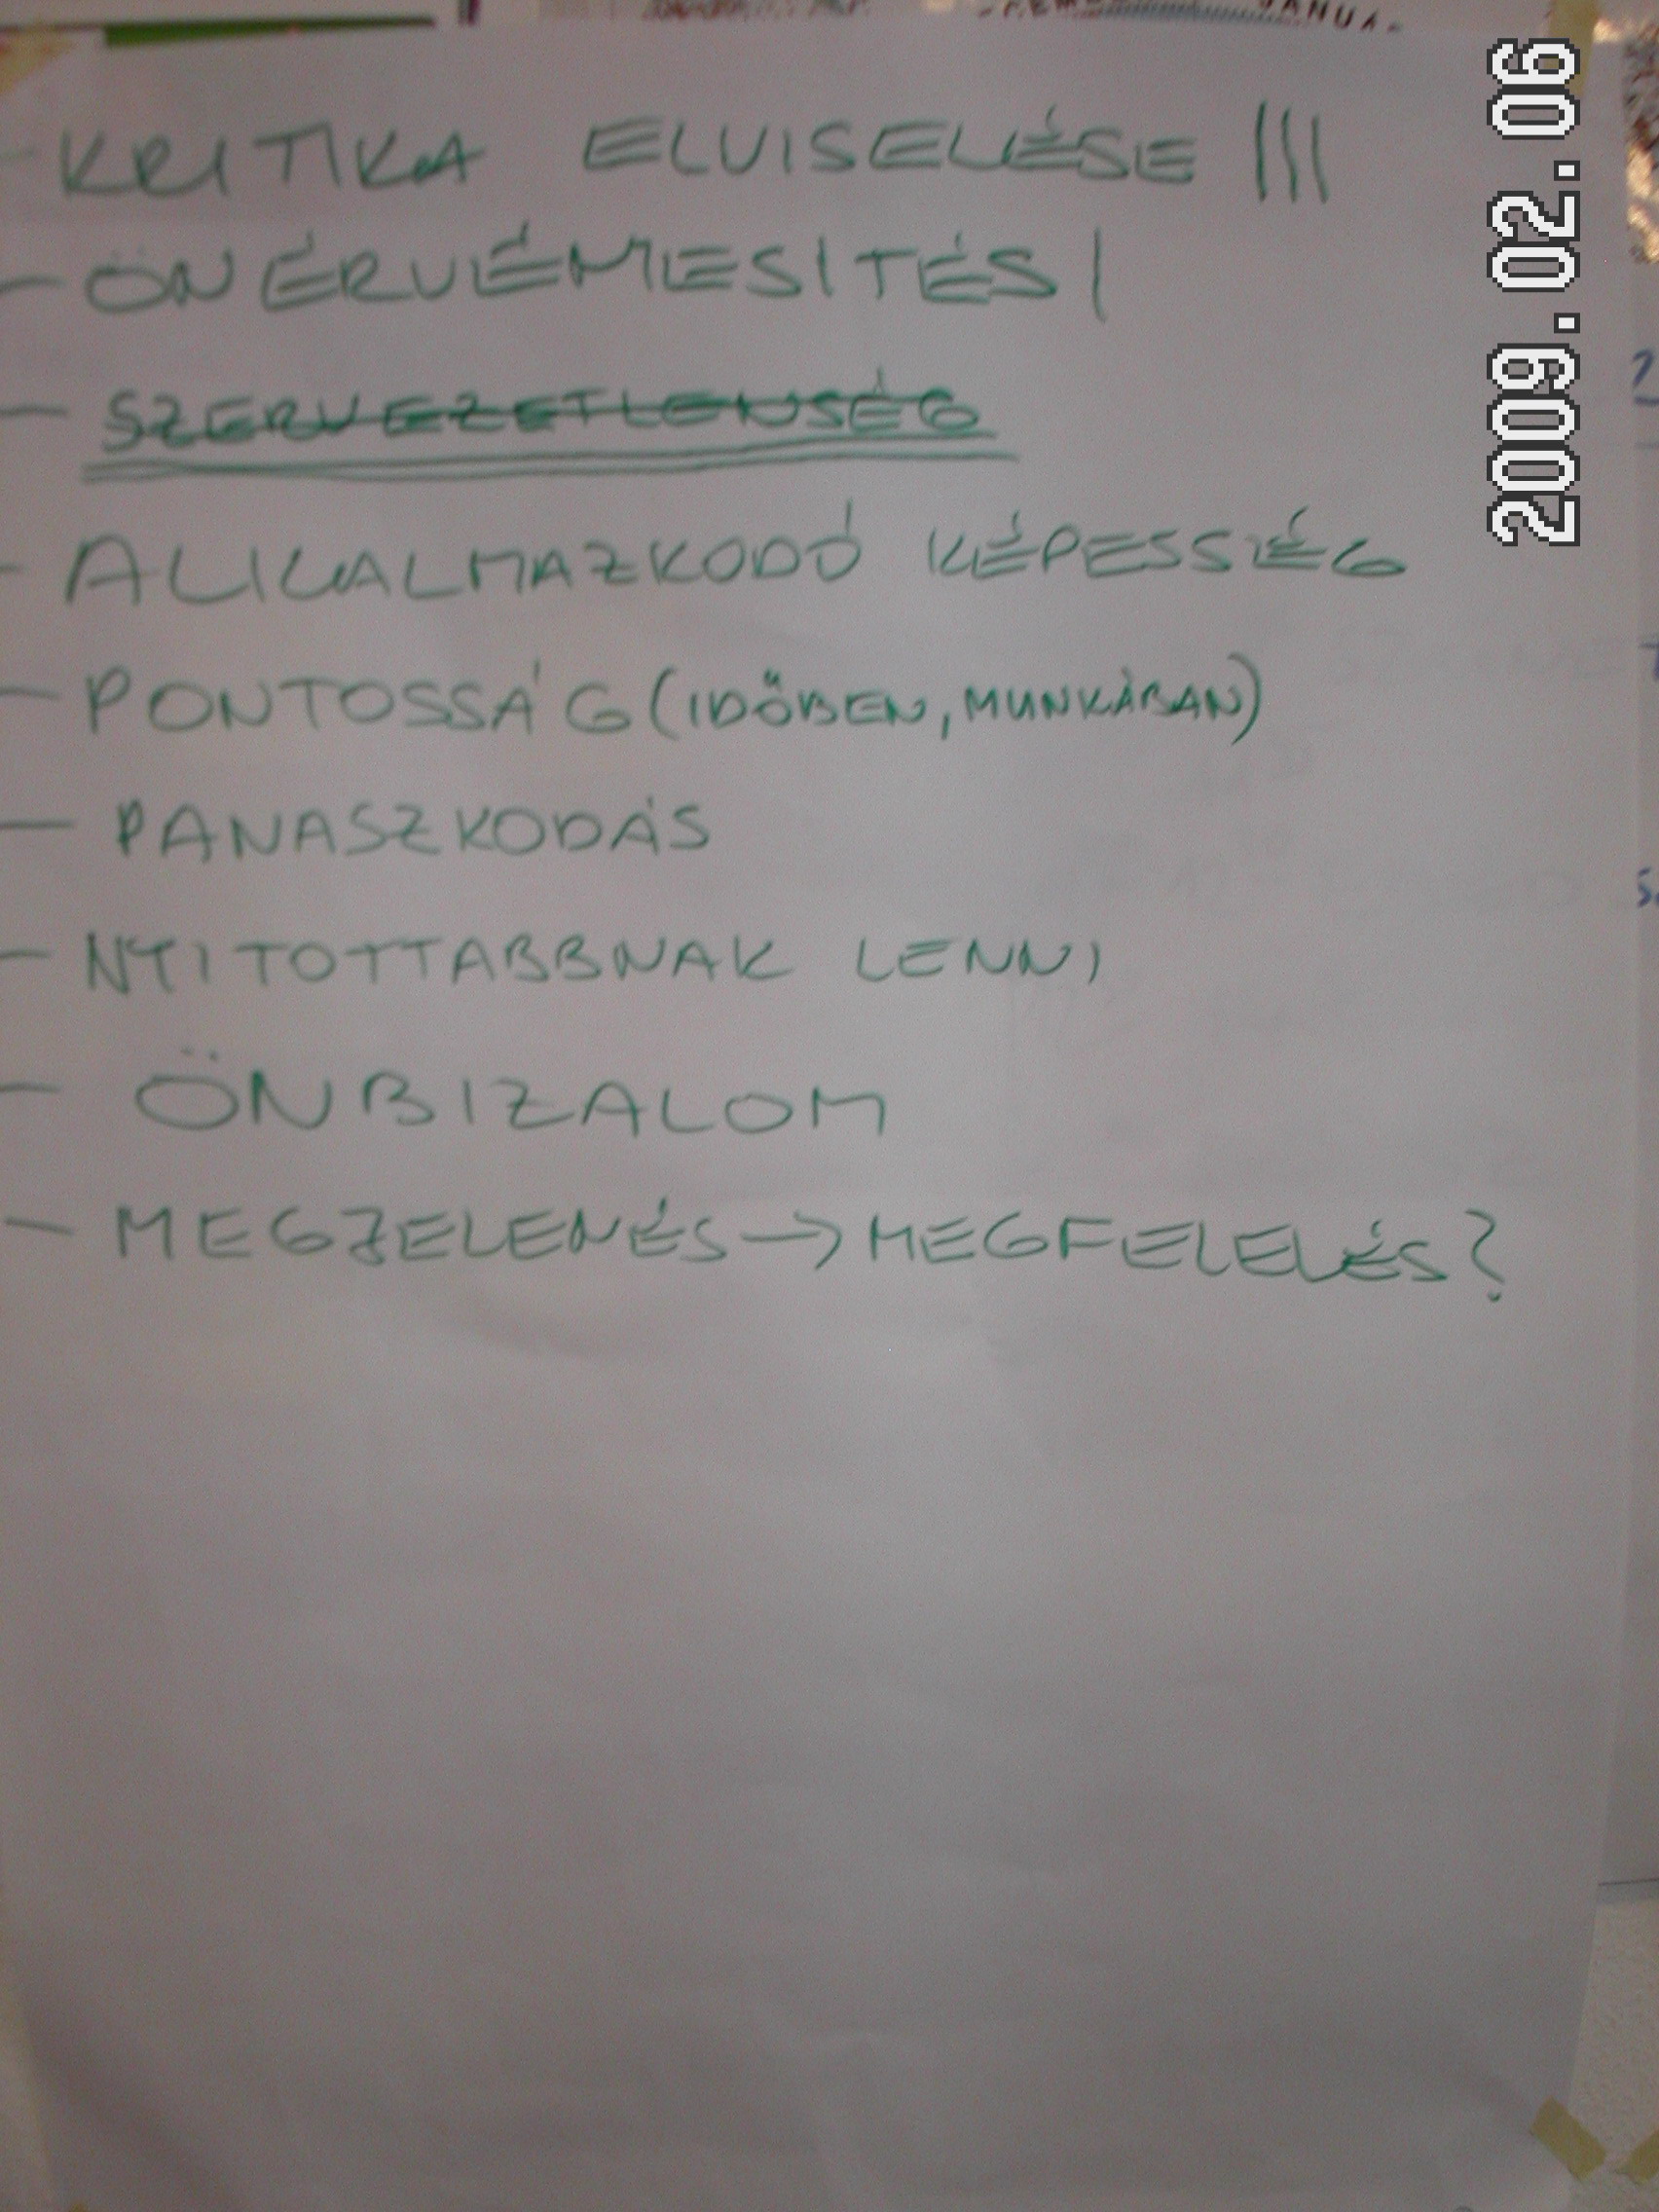 - KRITIKA ELVISELÉSE |||
- ÖNÉRVÉMESITÉS |
- SZERVEZETLENSÉG
- ALKALMAZKODÓ KÉPESSÉG
- PONTOSSÁG (IDŐBEN, MUNKÁBAN)
- PANASZKODÁS
- NYITOTTABBNAK LENNI
- ÖNBIZALOM
- MEGJELENÉS → MEGFELELÉS?
2009.02.06